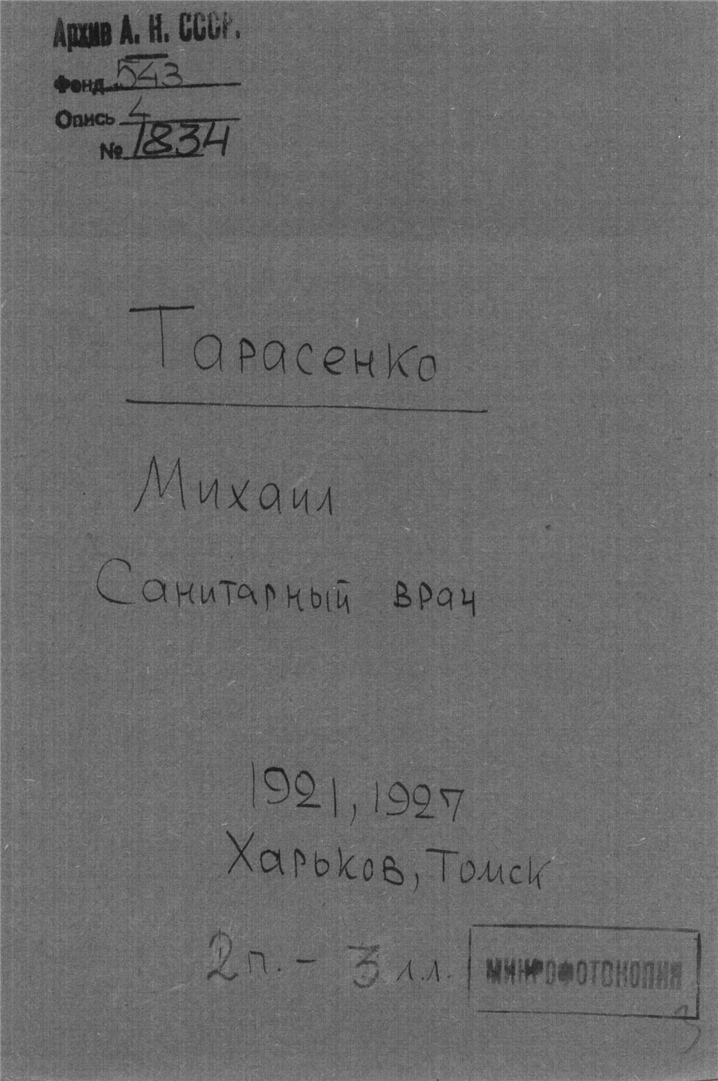 Архив А. Н. СССР.
Фонд 543
Опись 4
№ 1834
Тарасенко
Михаил
Санитарный врач
1921, 1927
Харьков, Томск
2 п. - 3 л.л.
МИКРОФОТОКОПИЯ
3